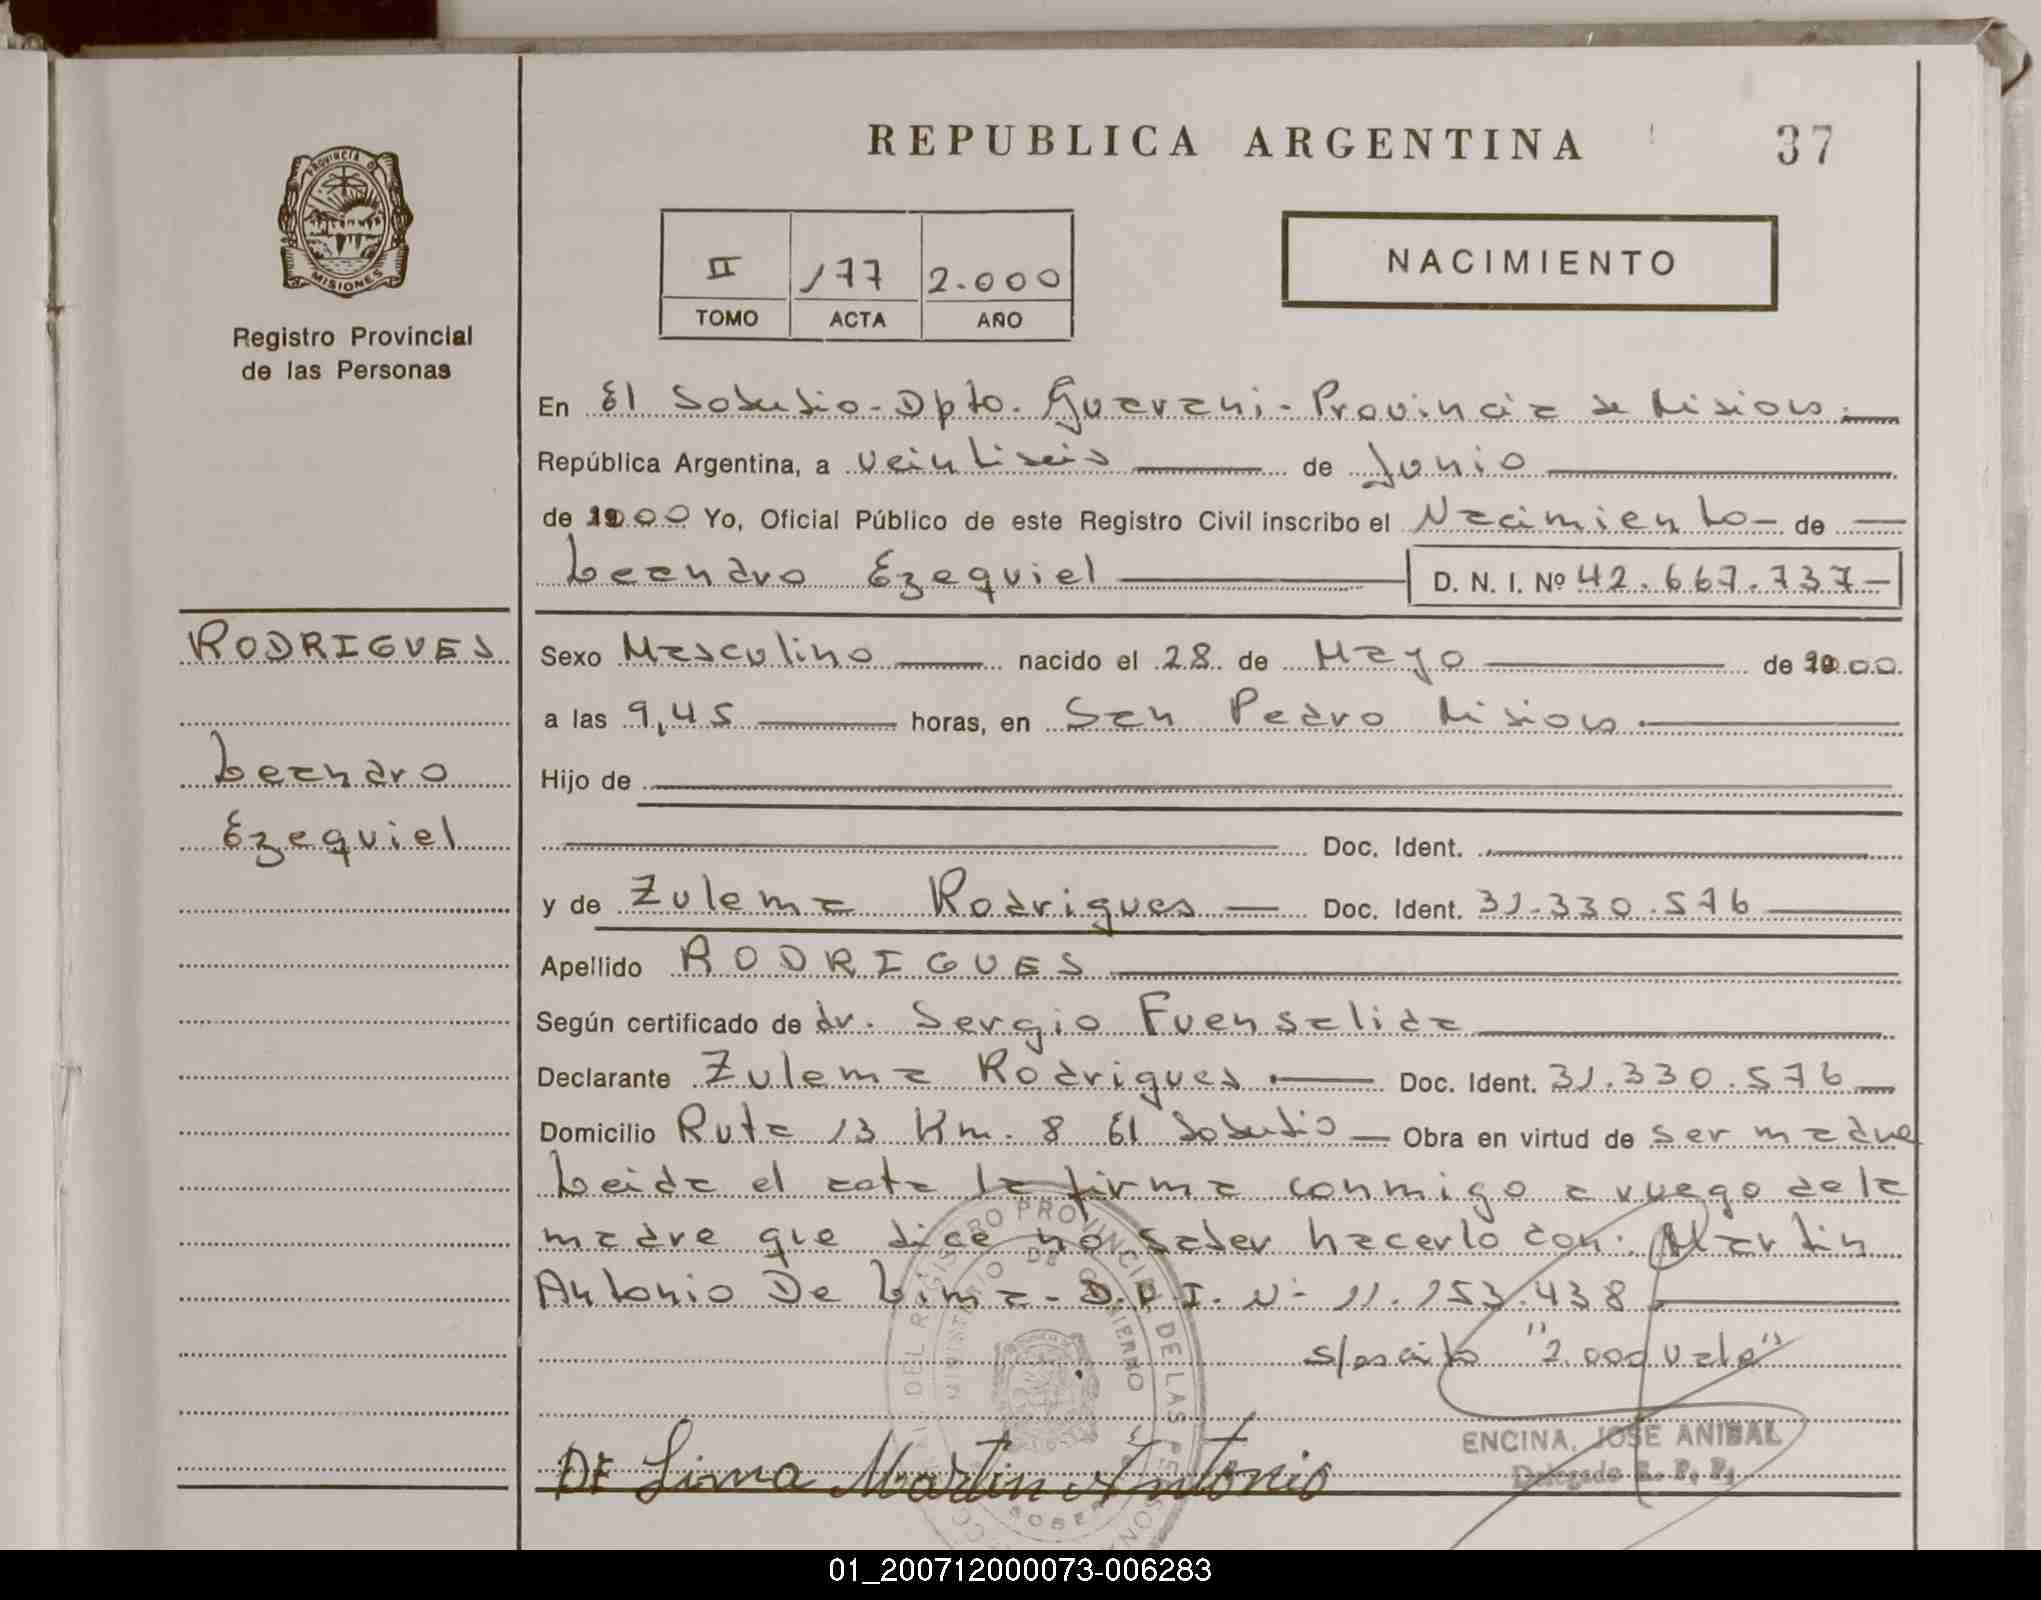 REPUBLICA ARGENTINA
37
PROVINCIA DE
MISIONES
Registro Provincial
de las Personas
II 177 2.000
TOMO ACTA AÑO
NACIMIENTO
En El Soberbio - Dpto. Guarani - Provincia de Misiones.
República Argentina, a veintiseis de Junio
de 2000 Yo, Oficial Público de este Registro Civil inscribo el Nacimiento - de
Leandro Ezequiel D. N. I. Nº 42.667.737-
RODRIGUES
Sexo Masculino nacido el 28 de Mayo de 2000
a las 9,45 horas, en San Pedro Misiones.
Leandro
Hijo de
Ezequiel
Doc. Ident.
y de Zulema Rodrigues - Doc. Ident. 31.330.576
Apellido RODRIGUES
Según certificado de dr. Sergio Fuensalida
Declarante Zulema Rodrigues. Doc. Ident. 31.330.576
Domicilio Ruta 13 Km. 8 El Soberbio - Obra en virtud de ser madre
Leida el acta la firma conmigo a ruego de la
madre que dice no saber hacerlo don: Martin
Antonio De Lima - D.N.I. Nº 11.153.438
s/escrito "2.000 vale"
DE Lima Martin Antonio
ENCINA, JOSE ANIBAL
Delegado R. P. P.
DEL REGISTRO PROVINCIAL DE LAS PERSONAS
MINISTERIO DE GOBIERNO
01_200712000073-006283